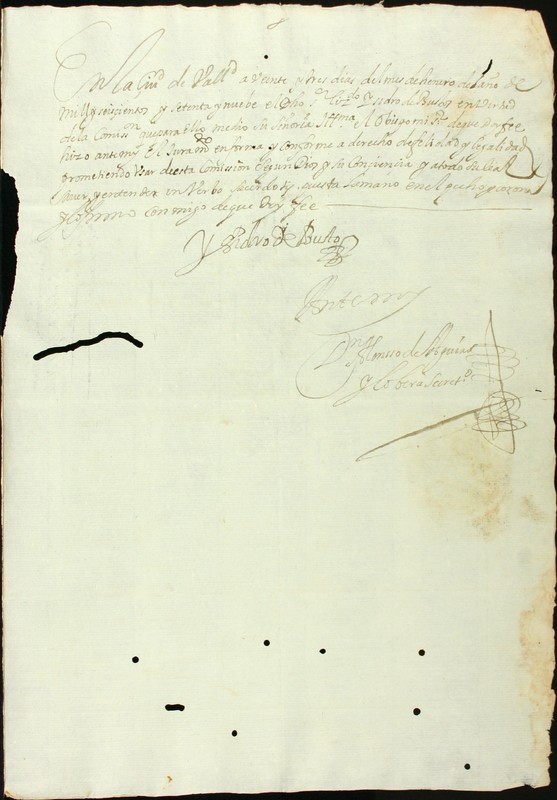 En la ciud de Valld a veinte y tres dias del mes de henero del año de
mill y seiscientos y setenta y nuebe el dho sr Lizdo Ysidro de Busto en virtud
de la Comisn que para ello medio su Señoria Illma el Obispo mi Sr de que doy fee
hizo ante mi El Juramdo en forma y conforme a derecho de fidelidad y legalidad
prometiendo Usar de esta Comission segun Dios y su Conciencia y a todo su leal
saver y entender in Verbo sacerdotis puesta la mano en el pecho y corona
y lo firmo Conmigo de que Doy fee
Ysidro de Busto
Ante my
Dn Alonsso de
y Lobera Secreto